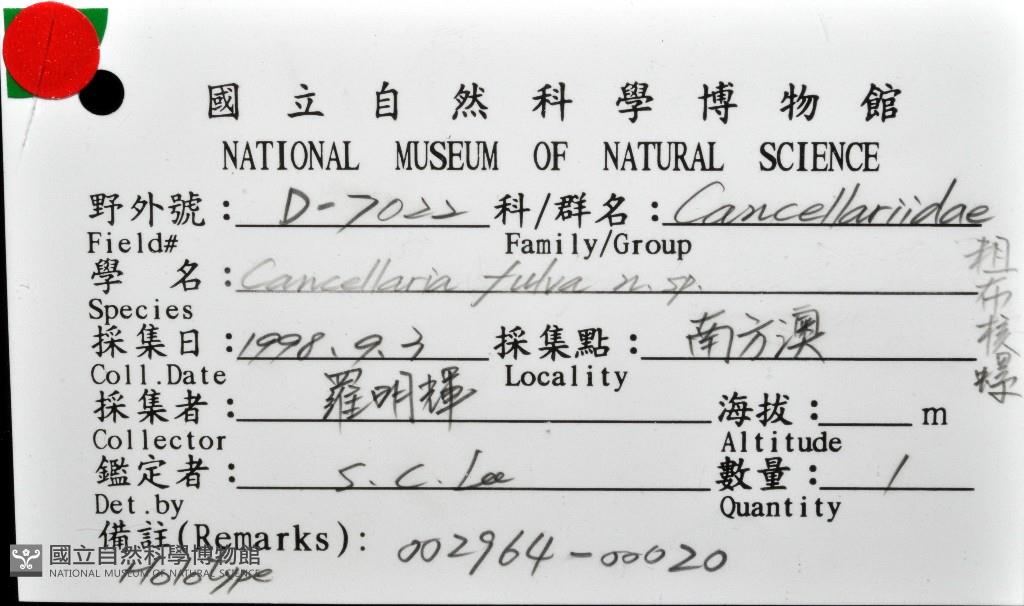 國立自然科學博物館
NATIONAL MUSEUM OF NATURAL SCIENCE
野外號: D-7022 科/群名: Cancellariidae
Field# Family/Group
學 名: Cancellaria fulva n. sp.
Species
粗布核螺
採集日: 1998.9.3 採集點: 南方澳
Coll.Date Locality
採集者: 羅明輝 海拔: m
Collector Altitude
鑑定者: S. C. Lee 數量: 1
Det.by Quantity
備註(Remarks): 002964-00020
Holotype
國立自然科學博物館
NATIONAL MUSEUM OF NATURAL SCIENCE